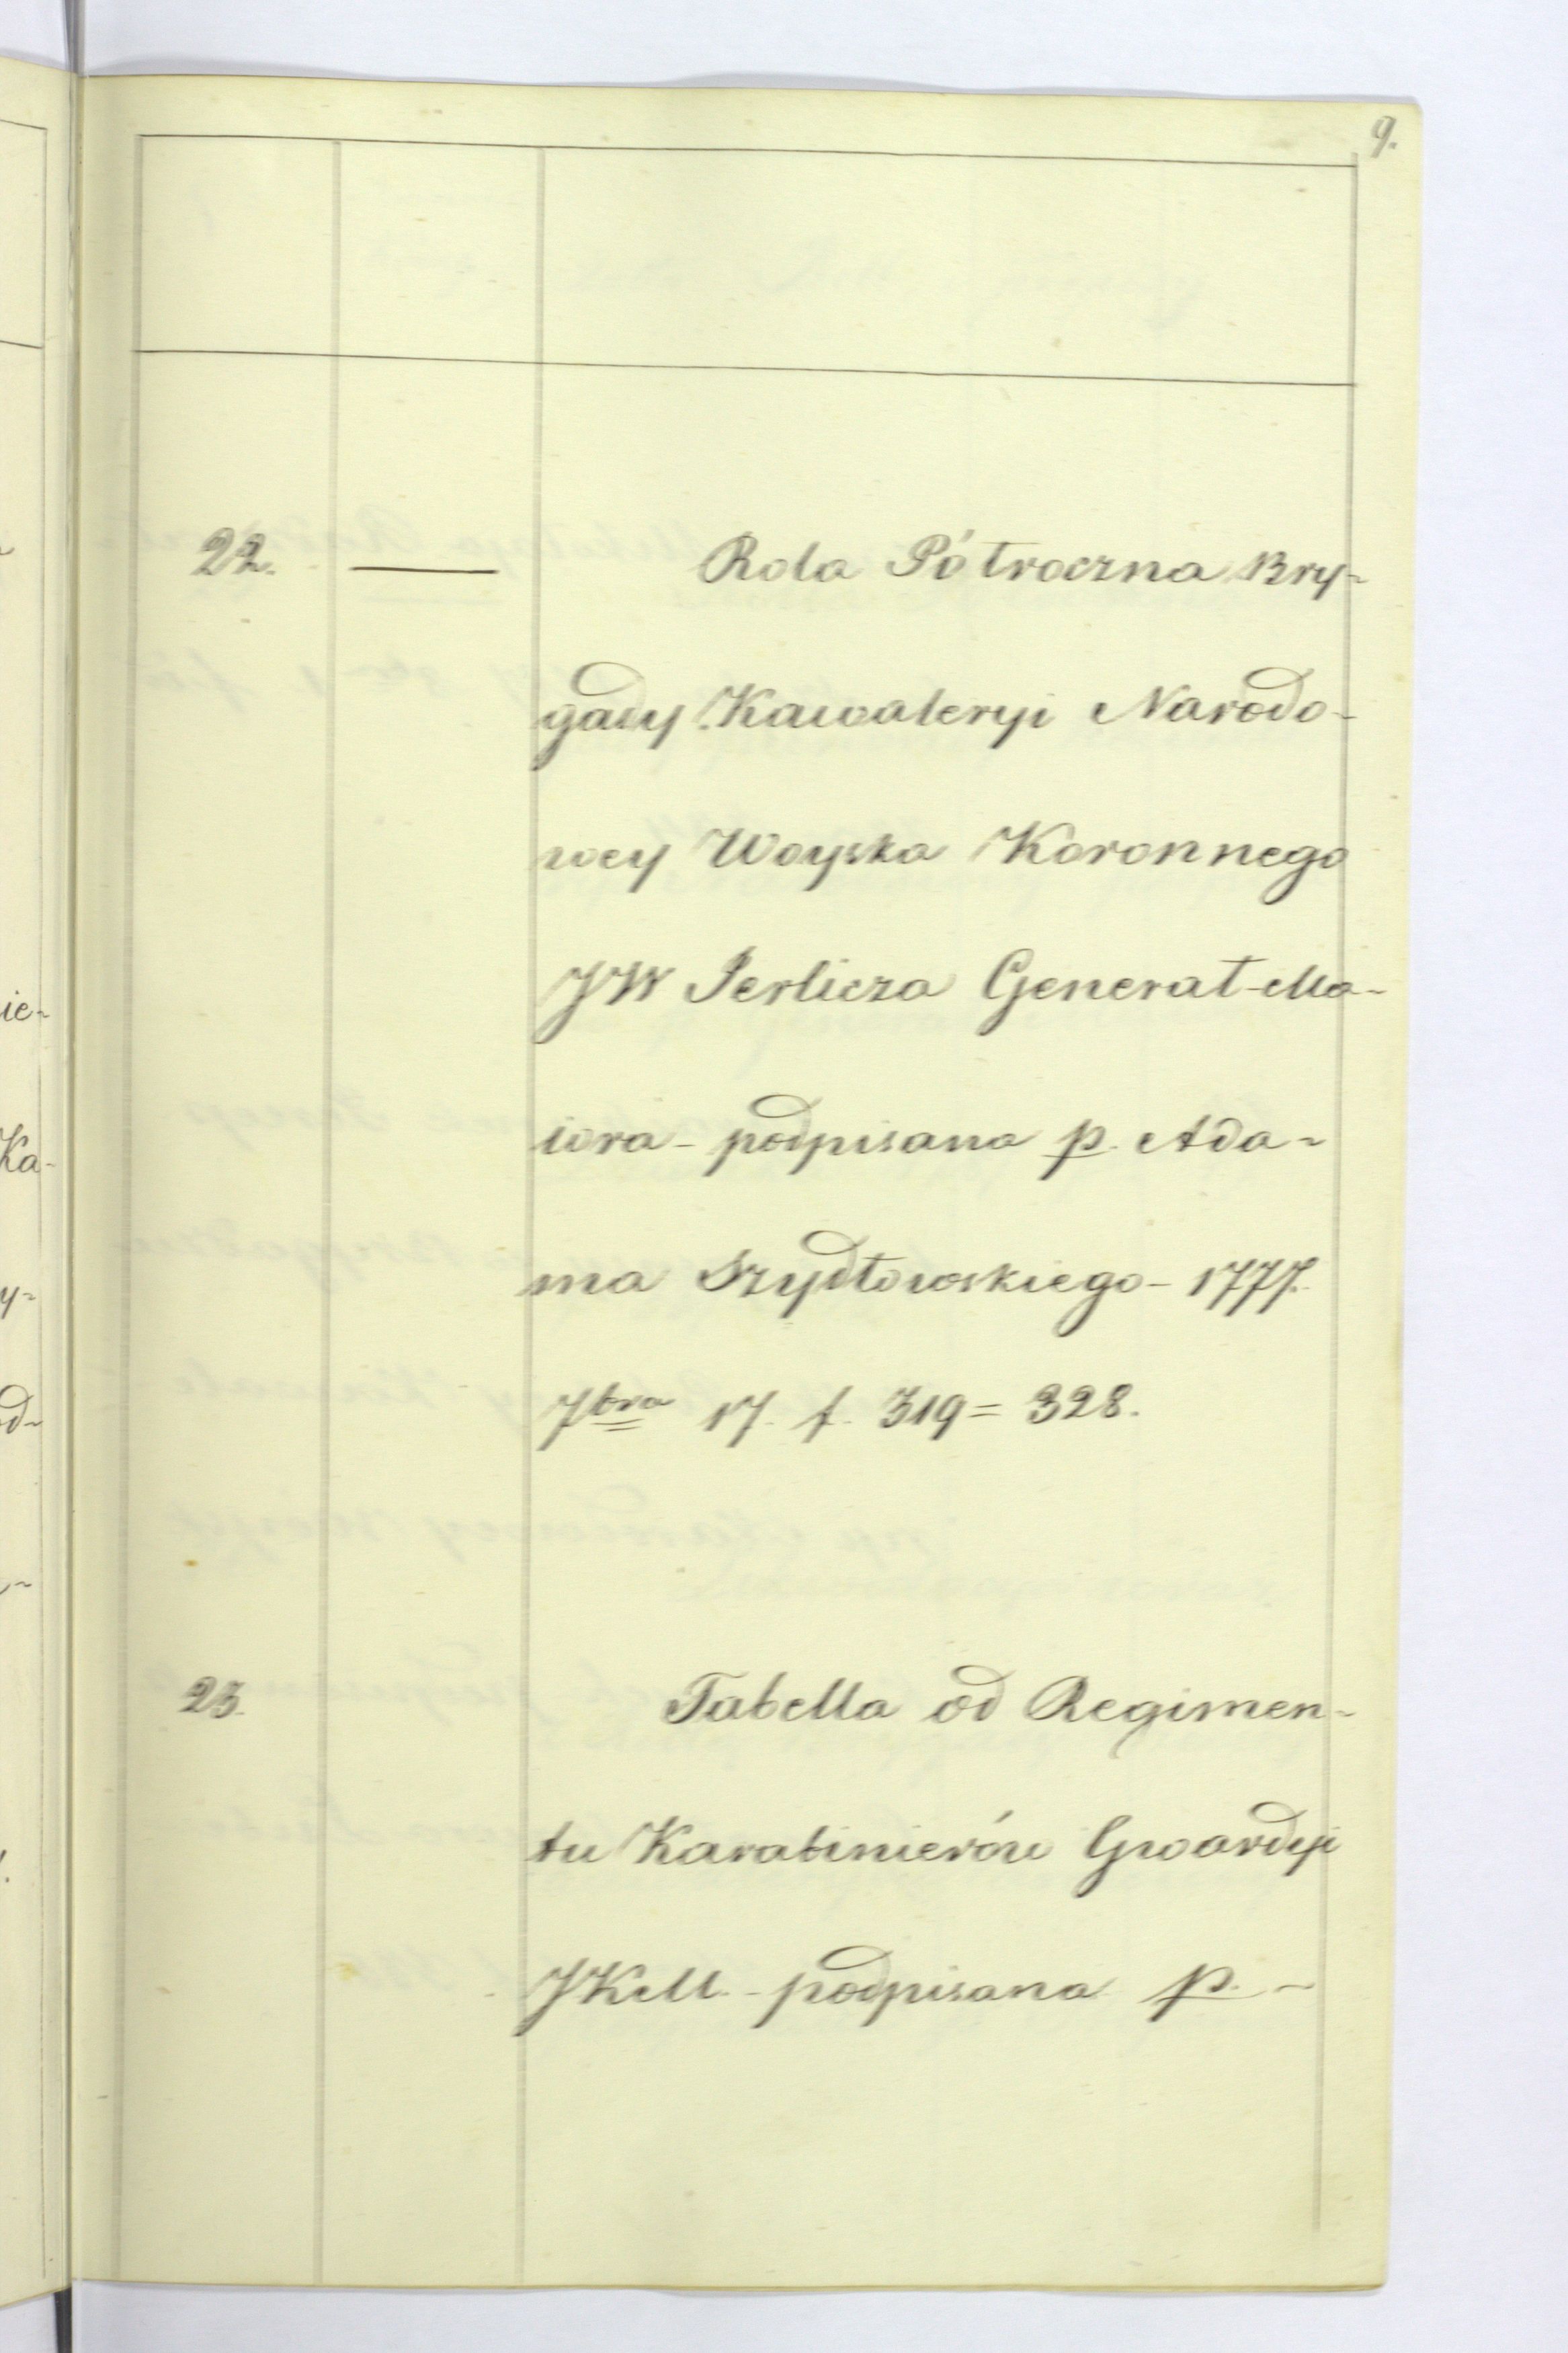 9.
22. — Rola Półroczna Bry-
gady Kawaleryi Narodo-
wey Woyska Koronnego
JW Jerlicza Generał-Ma-
iora - podpisana p. Ada-
ma Szydłowskiego - 1777.
7bra 17. f. 319 = 328.
23. Tabella od Regimen-
tu Karabinierów Gwardyi
JKM. - podpisana p. -